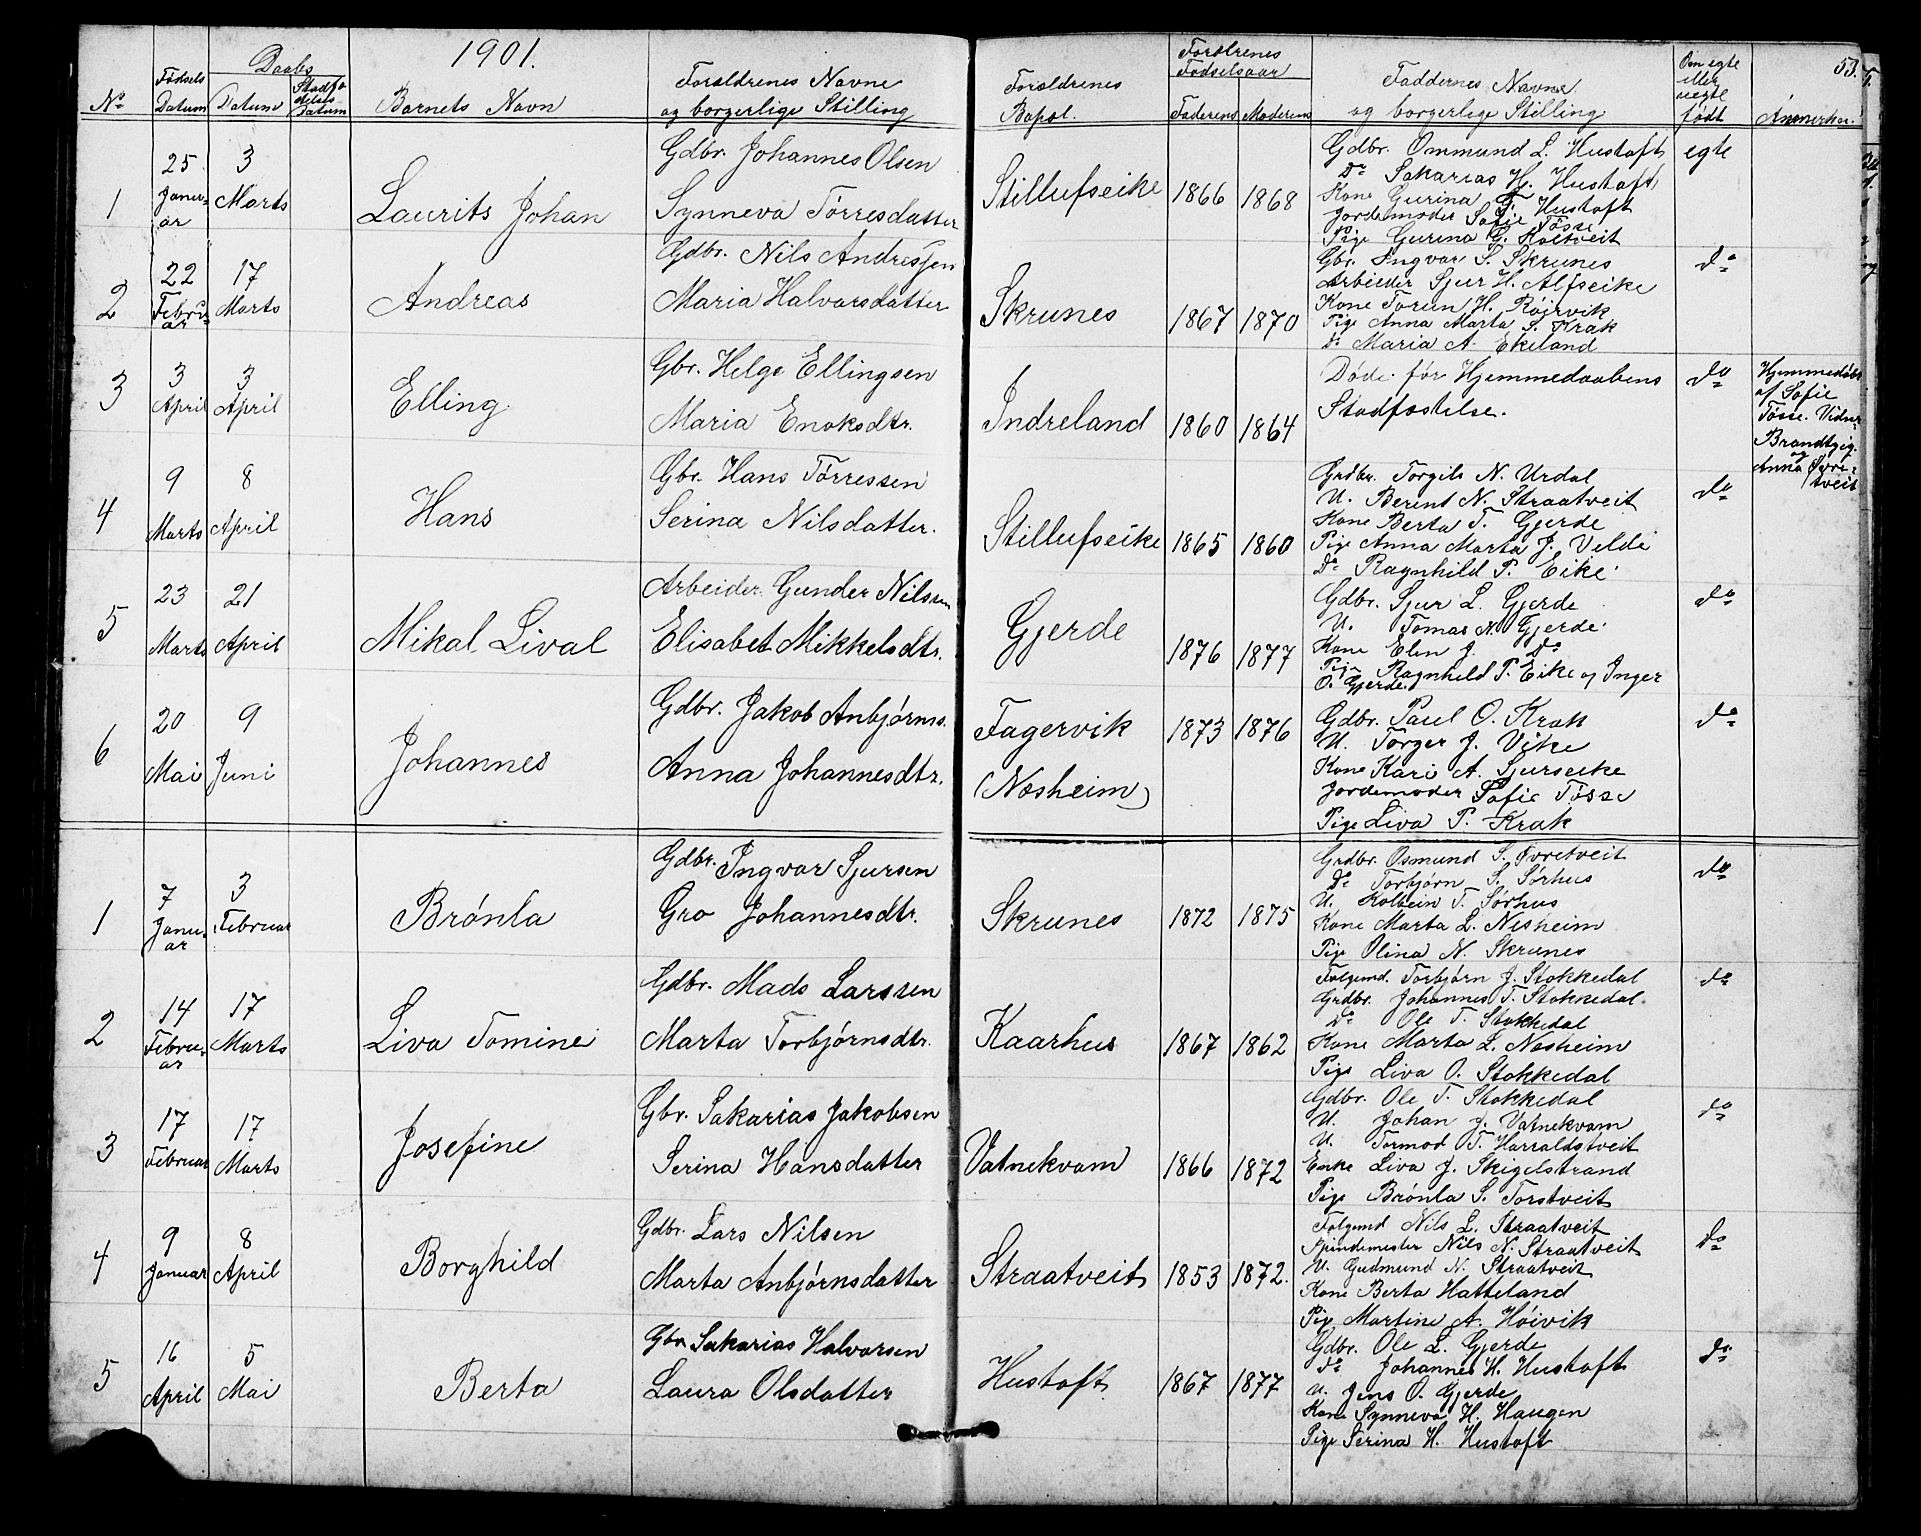 1901.
53.
No
Fødsels Datum
Daabs
Datum
Stadfæstelses Datum
Barnets Navn
Forældrenes Navne
og borgerlige Stilling
Forældrenes
Bopæl.
Forældrenes
Fødselsaar
Faderens
Moderens
Faddernes Navne
og borgerlige Stilling
Om egte
eller
uegte
født
1
25
Januar
3
Marts
Laurits Johan
Gdbr. Johannes Olsen
Synneva Tørresdatter
Stillufseike
1866
1868
Gdbr. Ommund L. Hustoft
Do Sakarias H. Hustoft
Kone Gurina T. Hustoft
Jordemoder Sofie Tøsse
Pige Gurina G. Holtveit
egte
2
22
Februar
17
Marts
Andreas
Gdbr. Nils Andressen
Maria Halvorsdatter
Skrunes
1867
1870
Gbr. Ingvar S. Skrunes
Arbeider Sjur H. Alfseike
Kone Torun H. Røirvik
Pige Anna Marta S. Krak
do Maria A. Ekeland
do
3
3
April
3
April
Elling
Gbr. Helge Ellingsen
Maria Enoksdtr.
Indreland
1860
1864
Døde før Hjemmedaabens
Stadfæstelse.
do
Hjemmedøbt
af Sofie
Tøsse. Vidner
og
Anna Øvre-
tveit
4
9
Marts
8
April
Hans
Gbr. Hans Tørressen
Serina Nilsdatter.
Stillufseike
1865
1860
Grdbr. Torgils N. Urdal
U. Berent N. Straatveit
Kone Berta T. Gjerde
Pige Anna Marta J. Velde
Do Ragnhild P. Eike
do
5
23
Marts
21
April
Mikal Lival
Arbeider Gunder Nilsen
Elisabet Mikkelsdtr.
Gjerde
1876
1877
Gdbr. Sjur L. Gjerde
U. Tomas N. Gjerde
Kone Elen J. Do
Pige Ragnhild P. Eike og Inger
O. Gjerde.
do
6
20
Mai
9
Juni
Johannes
Gdbr. Jakob Anbjørns.
Anna Johannesdtr.
Fagervik
(Næsheim)
1873
1876
Gdbr. Paul O. Krak
U. Torger J. Vike
Kone Kari A. Sjurseike
Jordemoder Sofie Tøsse
Pige Liva P. Krak
do
1
7
Januar
3
Februar
Brønla
Gdbr. Ingvar Sjursen
Gro Johannesdtr.
Skrunes
1872
1875
Grdbr. Osmund S. Øvretveit
Do Torbjørn S. Sørhus
U. Kolbein T. Sørhus
Kone Marta L. Nesheim
Pige Olina N. Skrunes
do
2
14
Februar
17
Marts
Liva Tomine
Gdbr. Mads Larssen
Marta Torbjørnsdtr.
Kaarhus
1867
1862
Følgemd. Torbjørn J. Stokkedal
Grdbr. Johannes T. Stokkedal
Do Ole T. Stokkedal
Kone Marta L. Næsheim
Pige Liva O. Stokkedal
do
3
17
Februar
17
Marts
Josefine
Gbr. Sakarias Jakobsen
Serina Hansdatter
Vatnekvam
1866
1872
Gdbr. Ole T. Stokkedal
U. Johan J. Vatnekvam
U. Tormod T. Harraldstveit
Enke Liva J. Skigelstrand
Pige Brønla S. Torstveit
do
4
9
Januar
8
April
Borghild
Gdbr. Lars Nilsen
Marta Anbjørnsdatter
Straatveit
1853
1872.
Følgemd Nils L. Straatveit
Spindemester Nils N. Straatveit
U. Gudmund N. Straatveit
Kone Berta Hatteland
Pige Martine A. Høivik
do
5
16
April
5
Mai
Berta
Gbr. Sakarias Halvorsen
Laura Olsdatter
Hustoft
1867
1877
Gdbr. Ole L. Gjerde
do Johannes H. Hustoft
U. Jens O. Gjerde
Kone Synneva H. Haugen
Pige Serina H. Hustoft
do